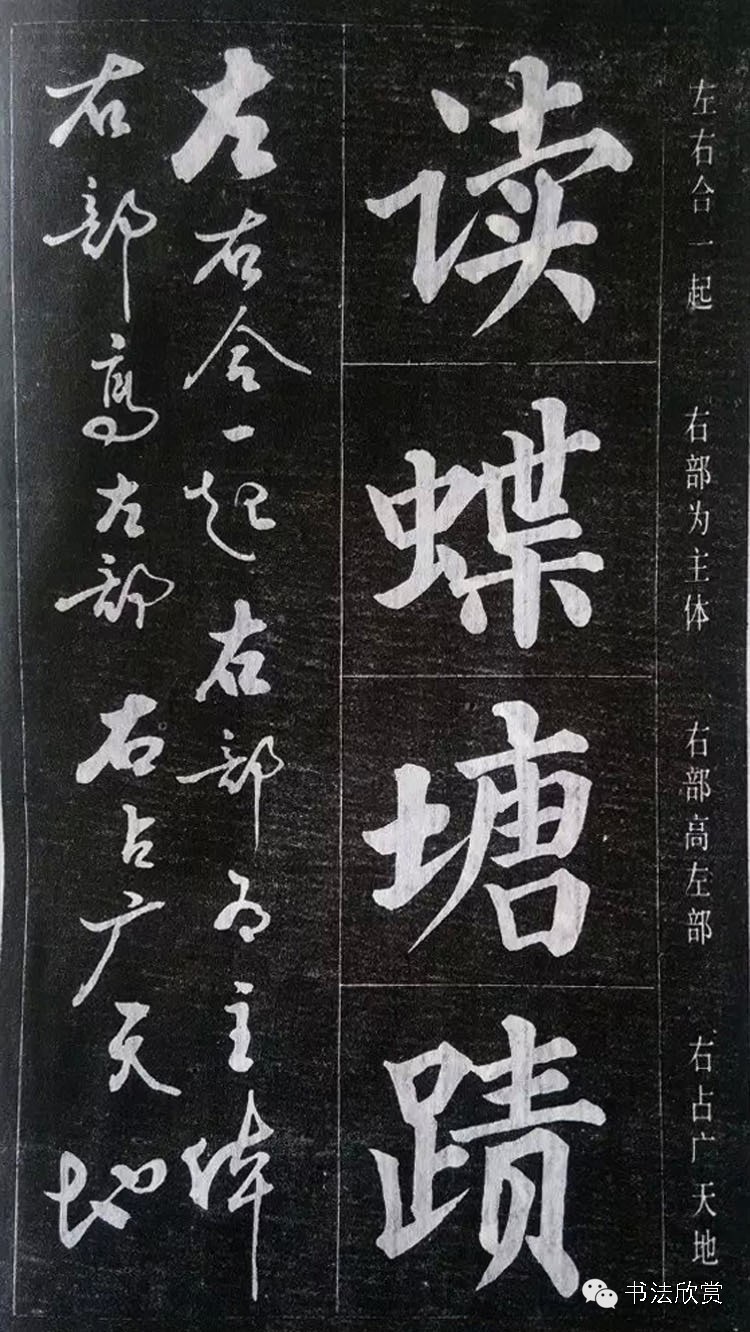 左右合一起 右部为主体 右部高左部 右占广天地
读
蝶
塘
蹟
左右合一起右部为主体
右部高左部右占广天地
书法欣赏